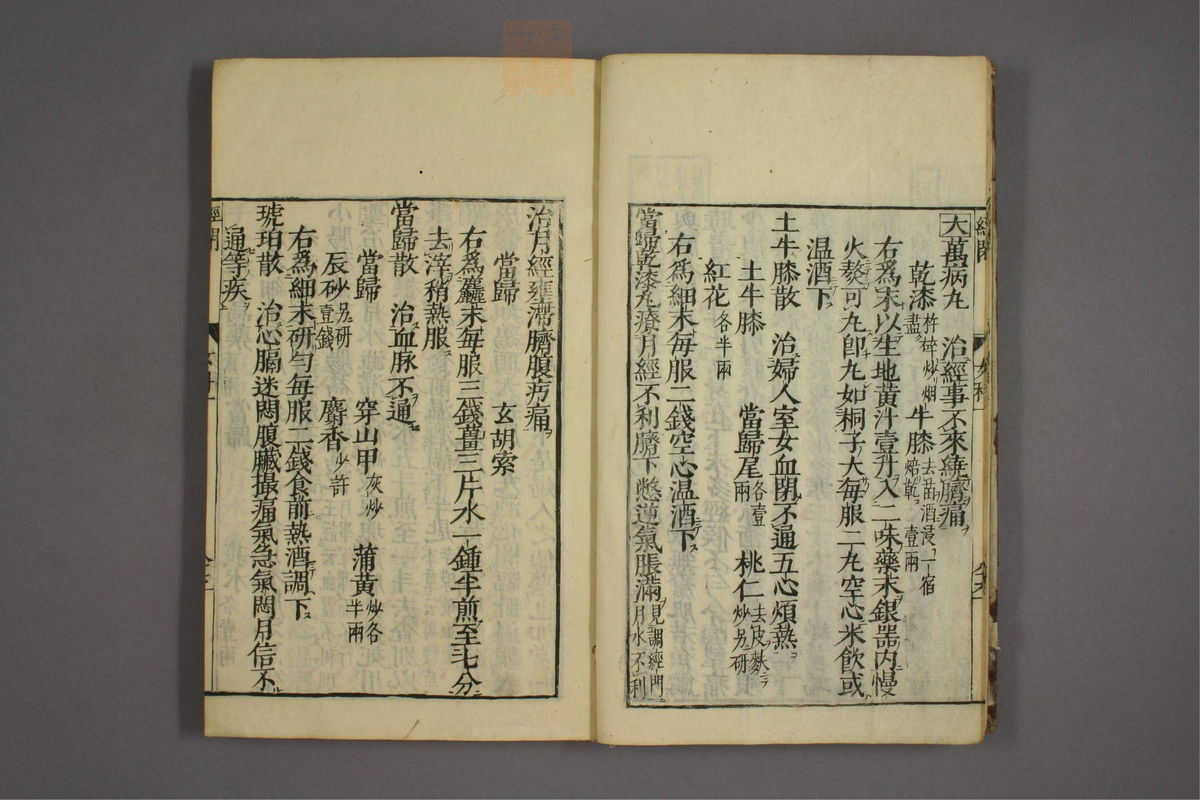 大萬病丸 治經事不來繞臍痛
乾漆杵碎炒烟盡 牛膝去苗酒浸一宿焙乾 壹兩
右爲末以生地黃汁壹升入二味藥末銀器內慢
火熬可丸卽丸如桐子大每服二丸空心米飲或
温酒下
土牛膝散 治婦人室女血閉不通五心煩熱
土牛膝 當歸尾各壹兩 桃仁去皮麩炒另研
紅花各半兩
右爲細末每服二錢空心温酒下
當歸乾漆丸療月經不利臍下憋逆氣脹滿見調經門月水不利
治月經壅滯臍腹㽲痛
當歸 玄胡索
右爲麤末每服三錢薑三片水一鍾半煎至七分
去滓稍熱服
當歸散 治血脉不通
當歸 穿山甲灰炒 蒲黃炒各半兩
辰砂另研壹錢 麝香少許
右爲細末研勻每服二錢食前熱酒調下
琥珀散 治心膈迷悶腹臟撮痛氣急氣悶月信不
通等疾
經閉